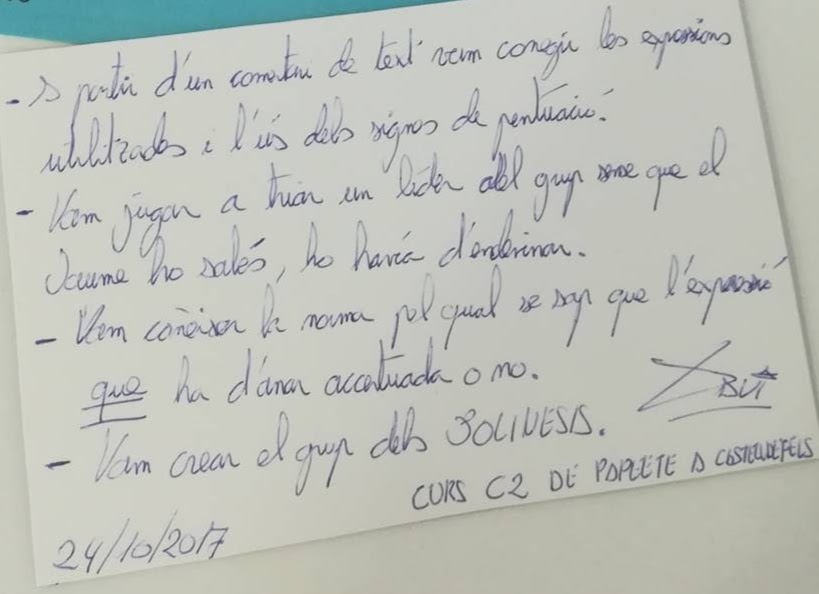 - A partir d'un comentari de text vam conegir les expressions
utilitzades i l'ús dels signes de pentuació.
- Vam jugar a triar un líder del grup sense que el
Jaume ho sabés, ho havia d'endevinar.
- Vam conèixer la norma pel qual se sap que l'expressió
que ha d'anar accentuada o no.
- Vam crear el grup dels POLINESIS.
CURS C2 DE PAPALLETE A CASTELLDEFELS
24/10/2017